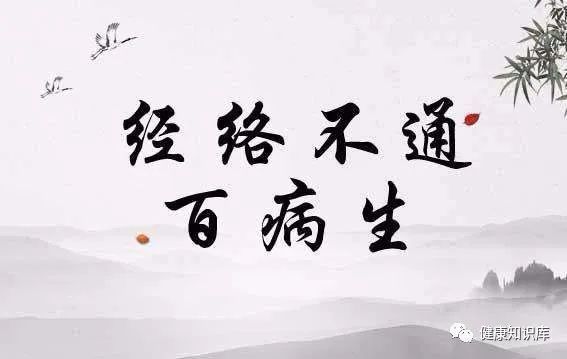 经络不通
百病生
健康知识库